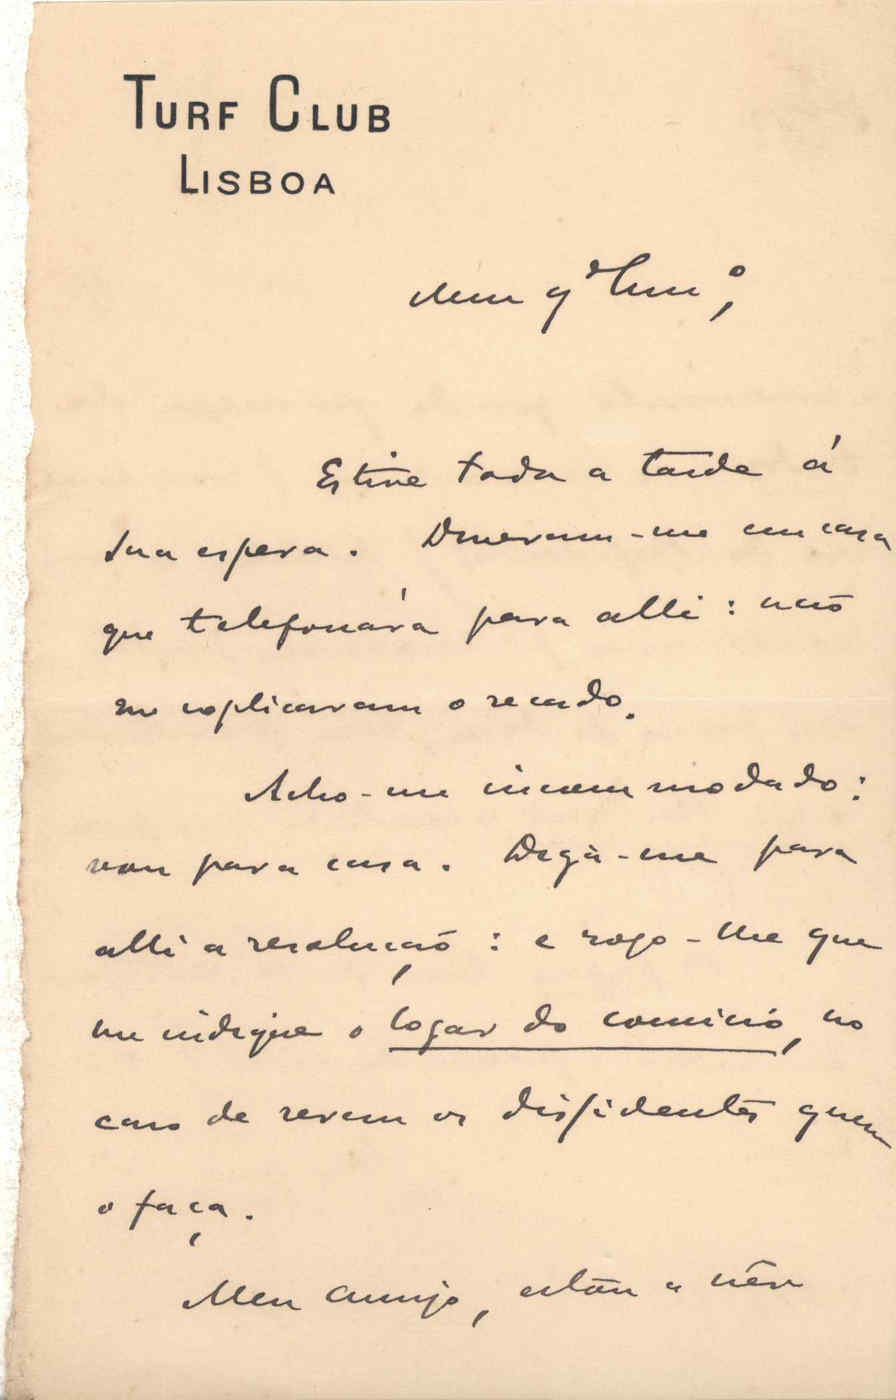 TURF CLUB
LISBOA
Meu q.do Am.o,
Estive toda a tarde á
sua espera. Disseram-me em casa
que telefonára para alli: não
me explicaram o recado.
Acho-me incommodado:
vou para casa. Diga-me para
alli a resolução: e rogo-lhe que
me indique o logar do comicio, no
caso de serem os dissidentes quem
o faça.
Meu amigo, estão a